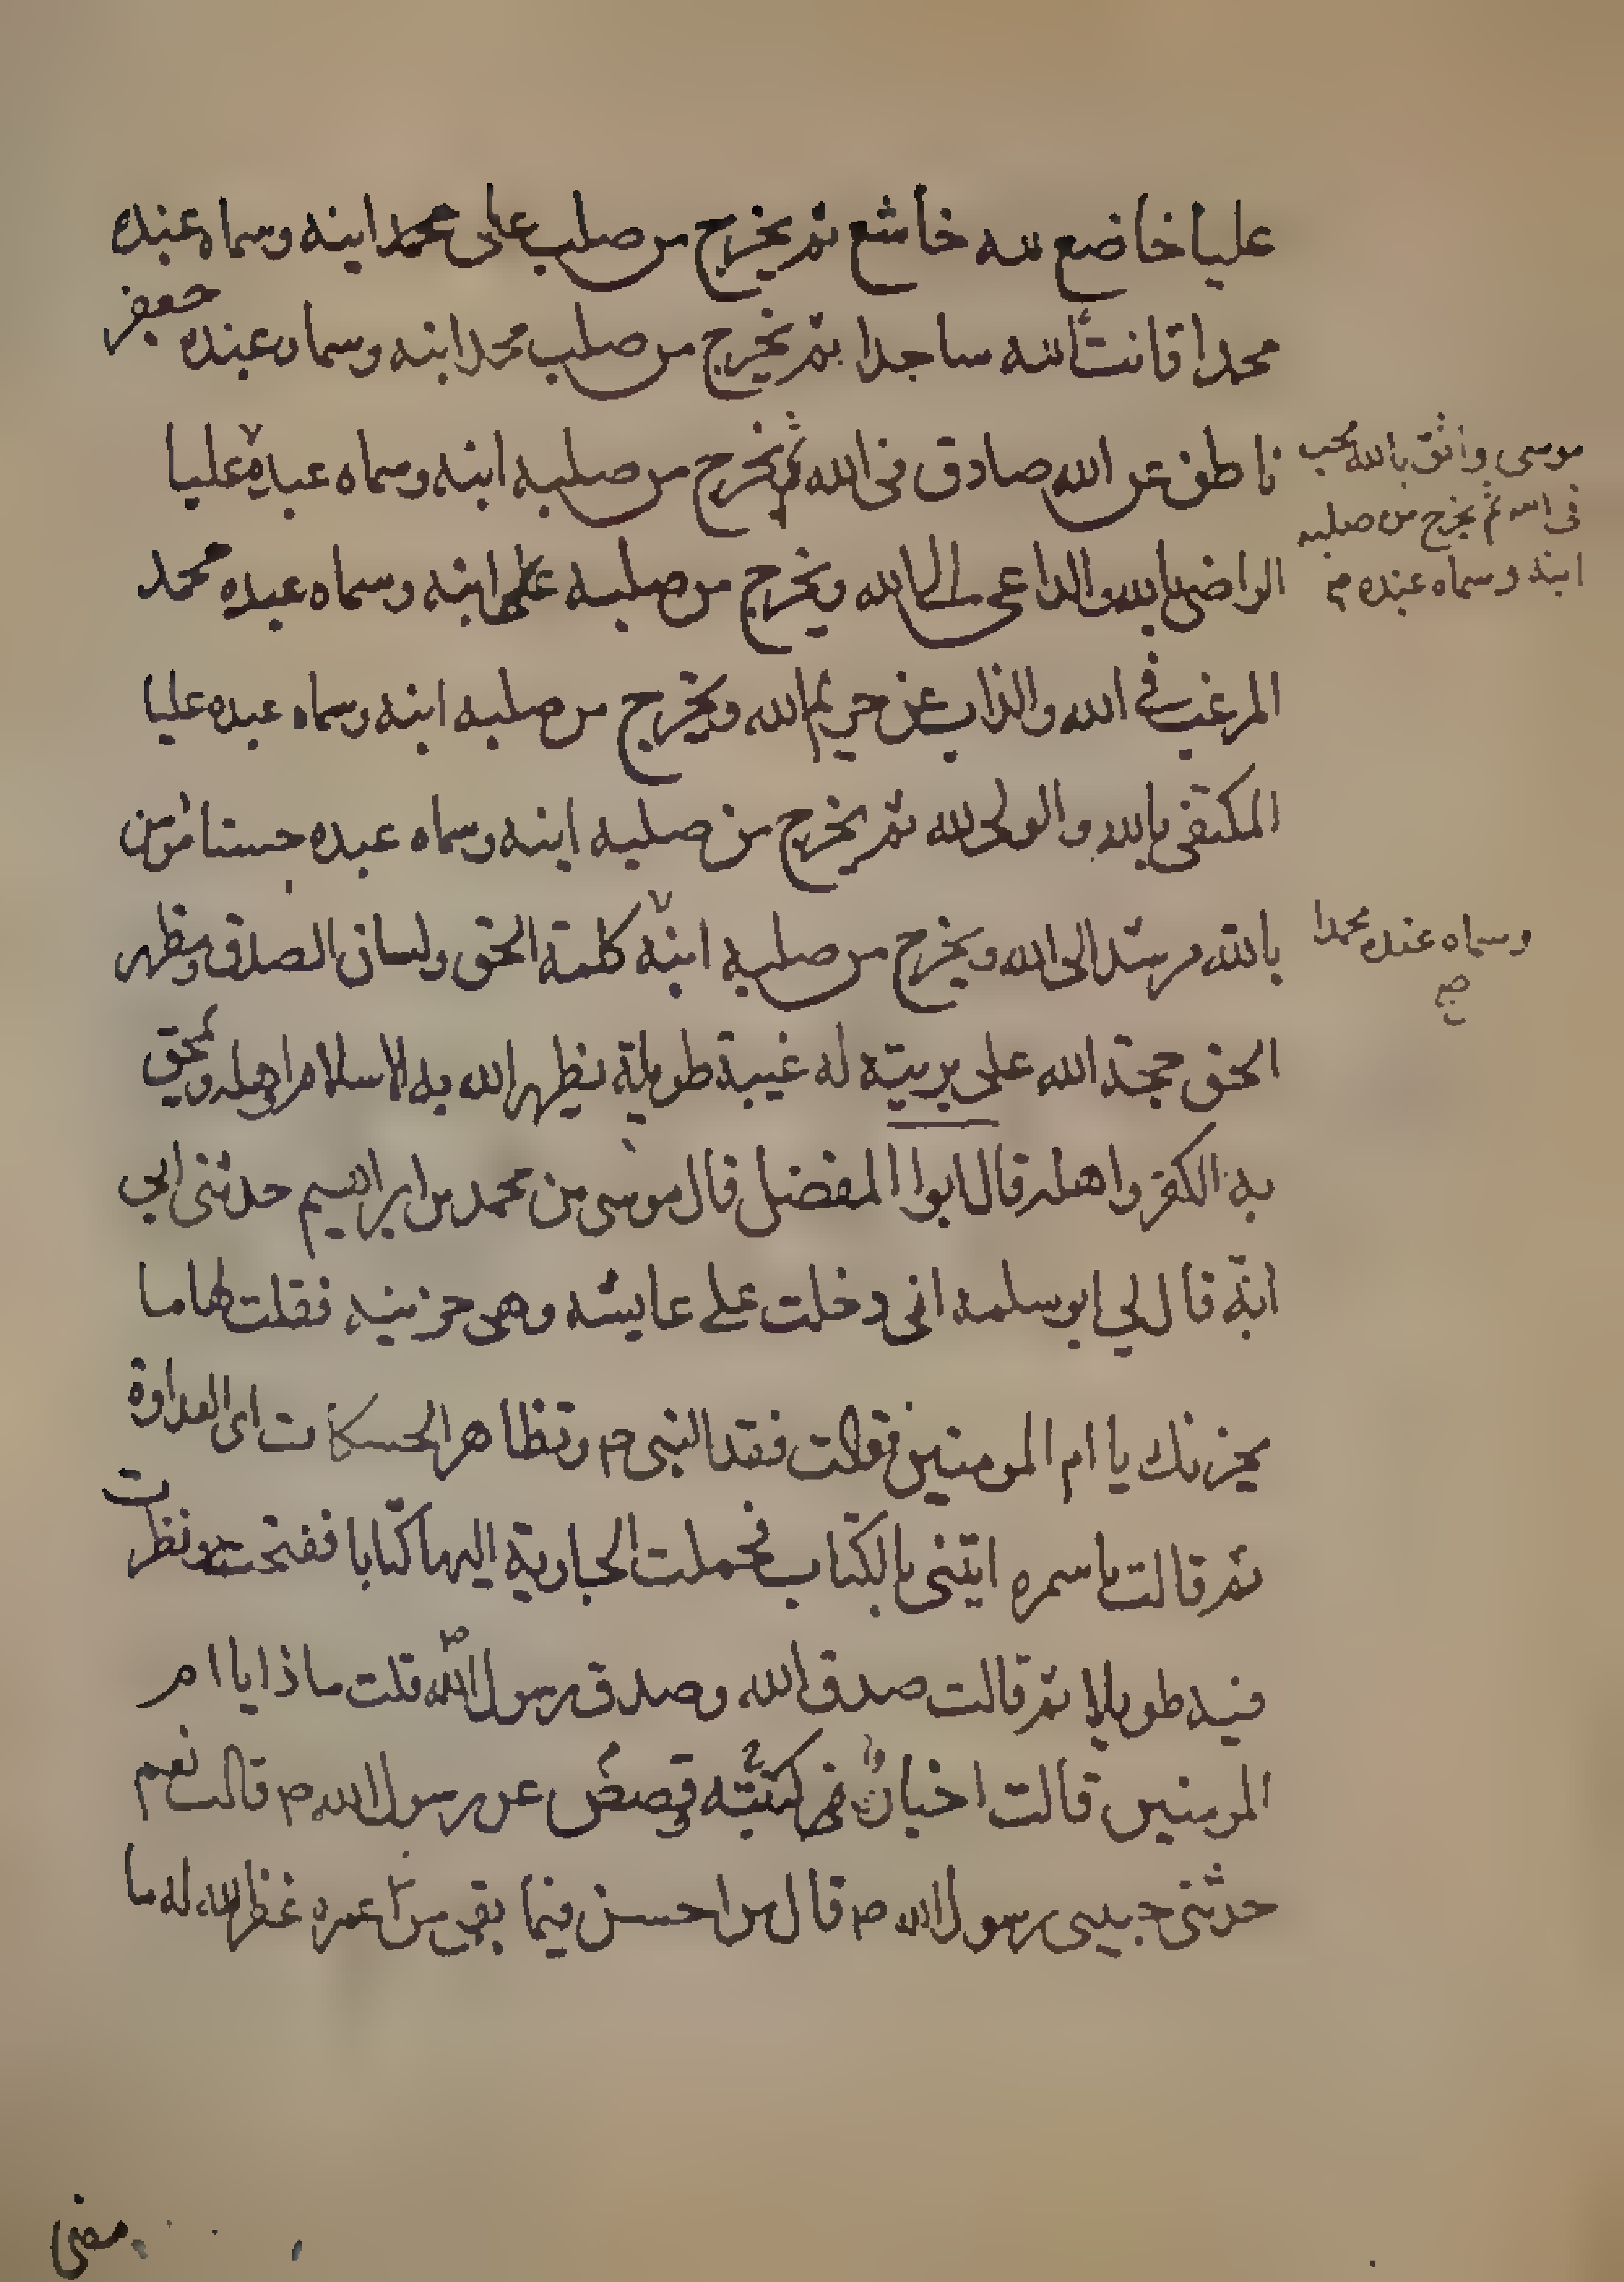 عليا خاضع لله خاشع ثم يخرج من صلب على محمد ابنه وسماه عنده
محمدا قانتا لله ساجدا ثم يخرج من صلب محمد ابنه وسماه عنده جعفر
ناطق عن الله صادق فى الله ثم يخرج من صلبه ابنه وسماه عبده عليا
موسى واثق بالله محب
فى الله ثم يخرج من صلبه
ابنه وسماه عنده
الراضى بالله والداعى الى الله ويخرج من صلبه على ابنه وسماه عبده محمد
المرغب فى الله والذاب عن حريم الله ويخرج من صلبه ابنه وسماه عبده عليا
المكتفى بالله والولى لله ثم يخرج من صلبه ابنه وسماه عبده حسنا مؤمن
بالله مرشد الى الله ويخرج من صلبه ابنه كلمة الحق ولسان الصدق ومظهر
وسماه عنده محمدا
صح
الحق حجة الله على بريته له غيبة طويلة يظهر الله به الاسلام واهله ويمحق
به الكفر واهله قال ابوا المفضل قال موسى بن محمد بن ابراهيم حدثنى ابي
انه قال لي ابو سلمه انى دخلت على عايشه وهى حزينه فقلت لها ما
يحزنك يا ام المومنين فقالت فقد النبى ص وتظاهر الحسكات اى العداوة
ثم قالت يا سمره ايتنى بالكتاب فحملت الجارية اليها كتابا ففتحت ونظرت
فيه طويلا ثم قالت صدق الله وصدق رسول الله ص قلت ماذا يا ام
المومنين قالت اخبار كتبته قصص عن رسول الله ص قالت نعم
حدثنى حبيبى رسول الله ص قال من احسن فيما بقى من عمره غفر الله له ما
مضى